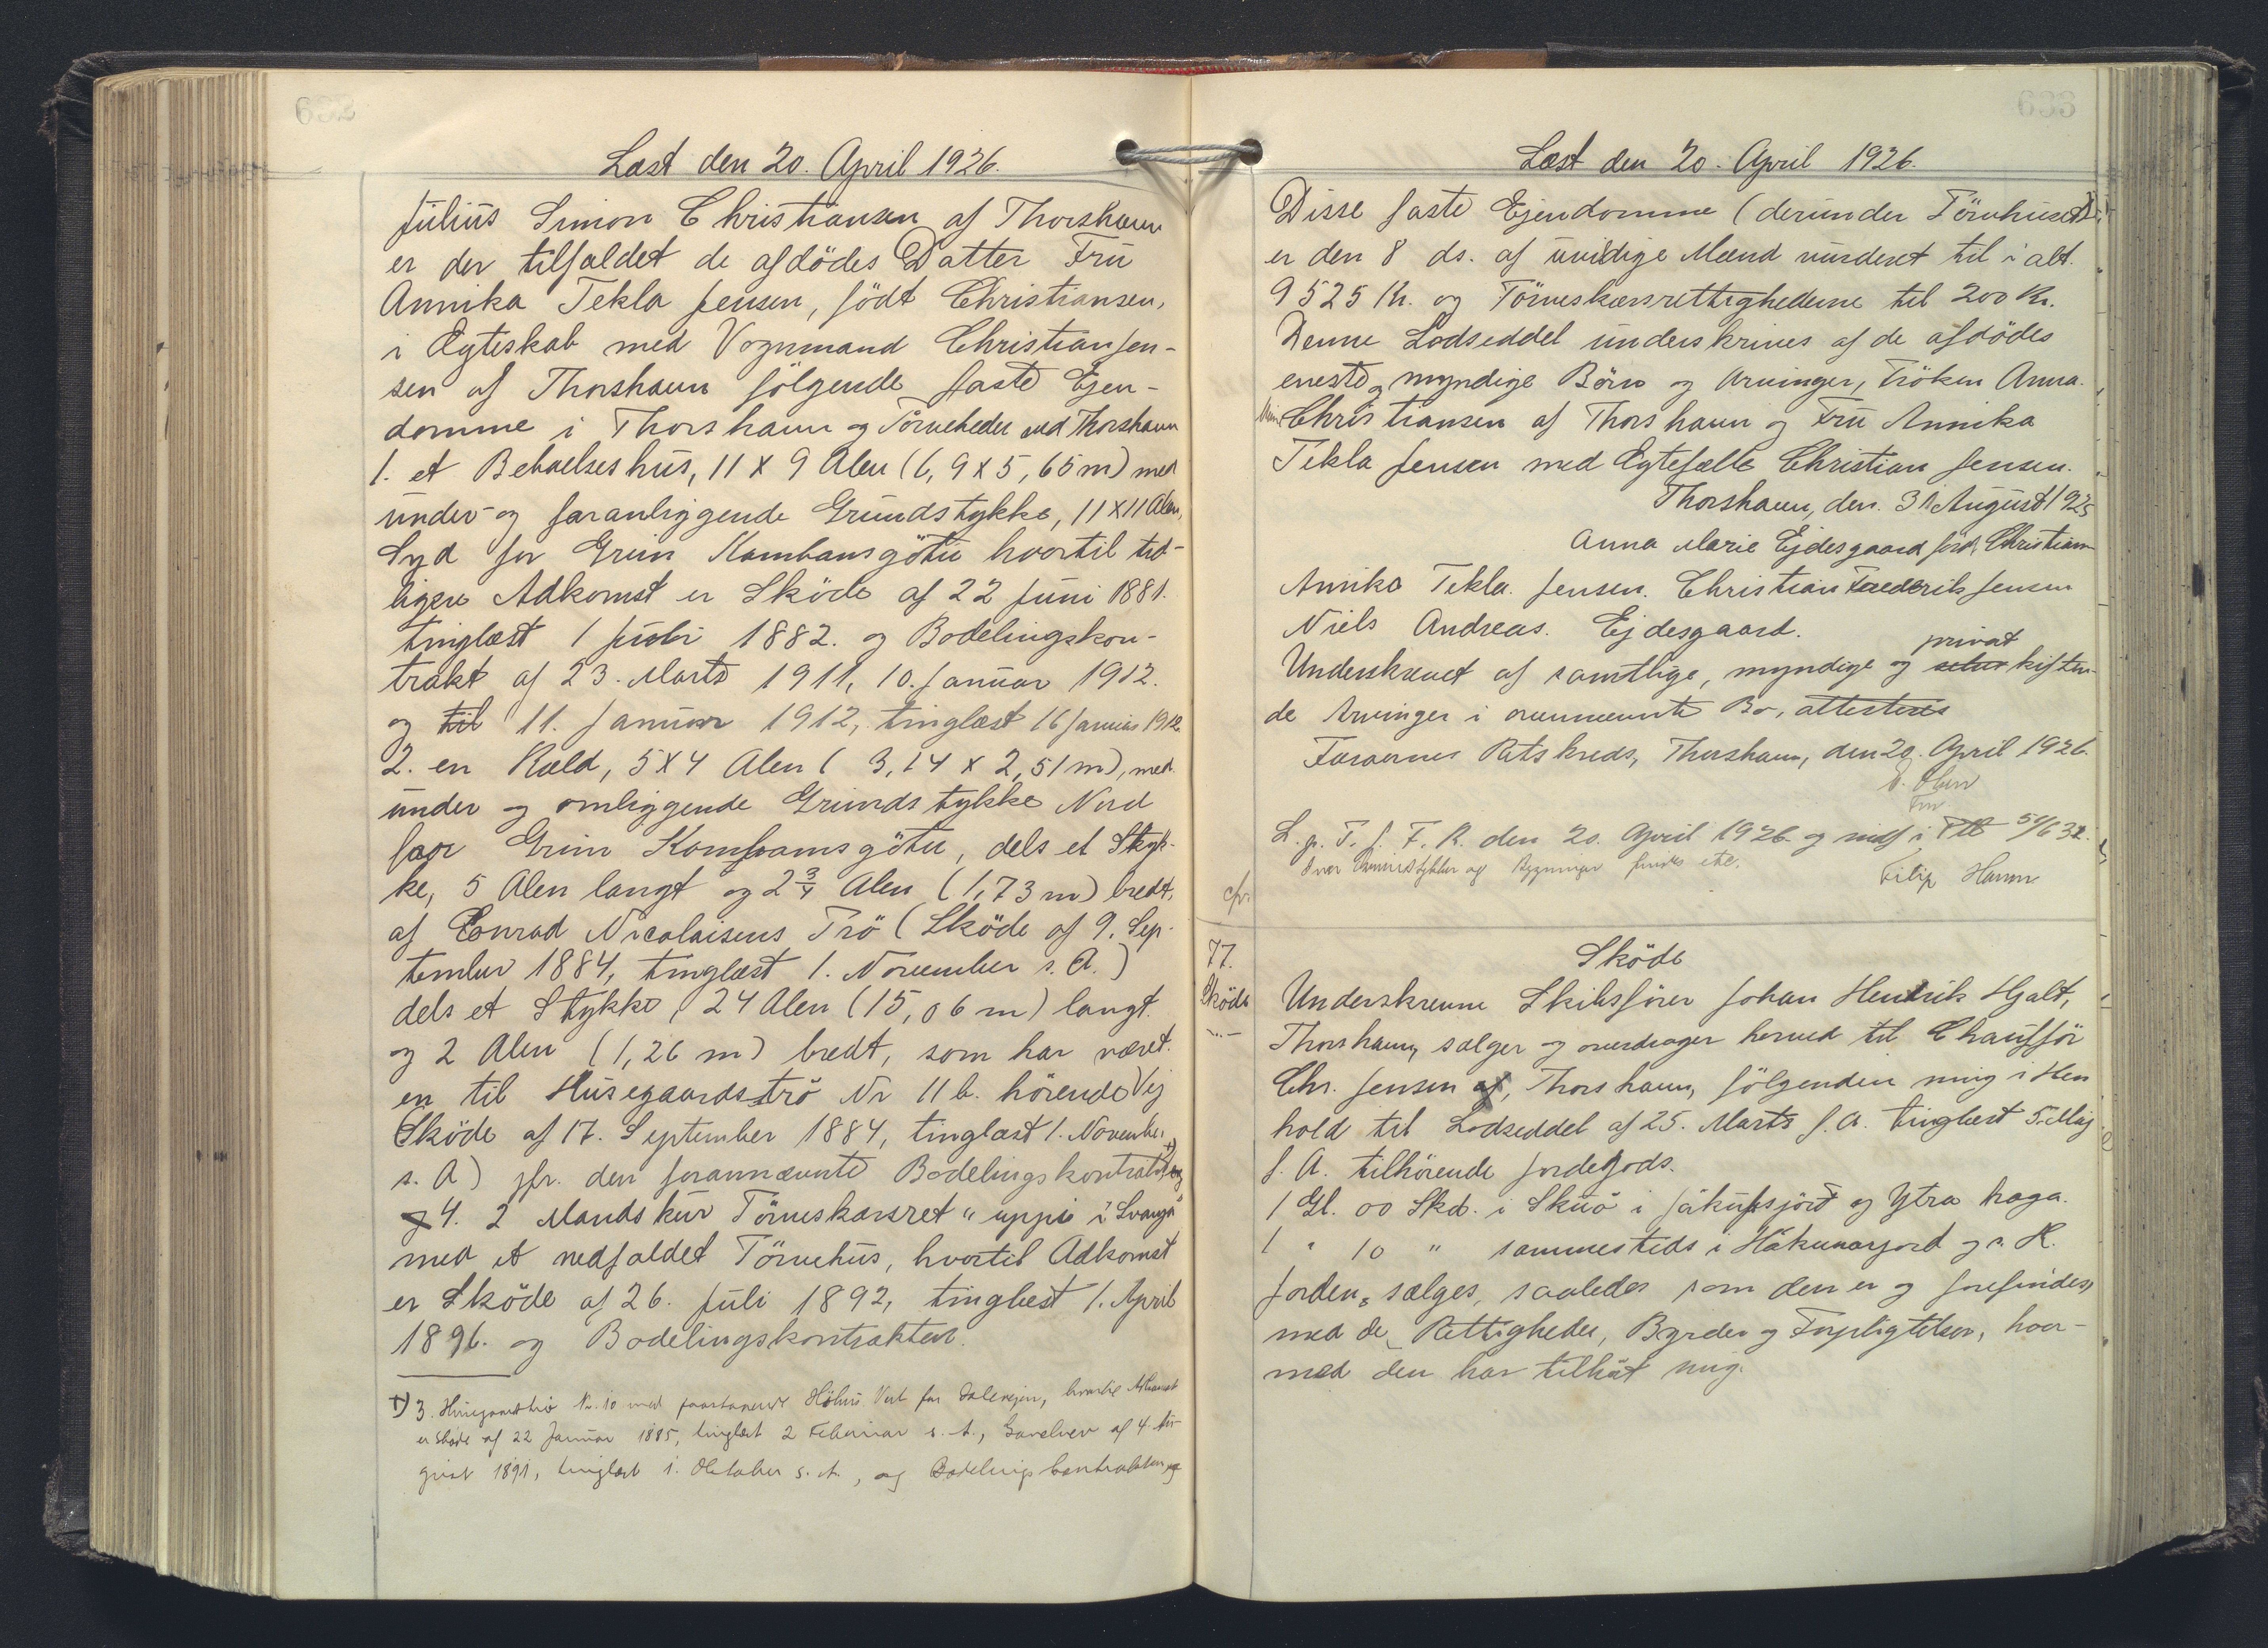 632
Læst den 20. April 1926.
Julius Simon Christiansen af Thorshavn
er der tilfaldet de afdödes Datter Fru
Annika Tekla Jensen, födt Christiansen,
i Ægteskab med Vognmand Christian Jen-
sen af Thorshavn fölgende faste Ejen-
domme i Thorshavn og Törveheder ved Thorshavn
1. et Beboelseshus, 11 X 9 Alen (6,9 X 5,65 m) med
under- og foranliggende Grundstykke, 11 X 11 Alen,
Syd for Grim Kambansgötu hvortil tid-
ligere Adkomst er Sköde af 22 Juni 1881.
tinglæst 1 Juli 1882. og Bodelingskon-
trakt af 23. Marts 1911, 10. Januar 1912.
og til 11. Januar 1912, tinglæst 16 Januar 1912.
2. en Kæld, 5 X 4 Alen ( 3,14 x 2,51 m), med
under og omliggende Grundstykke Nord
for Grim Kambansgötu, dels et Styk-
ke, 5 Alen langt og 2 3/4 Alen (1,73 m) bredt,
af Conrad Nicolaisens Trö (Sköde af 9. Sep-
tember 1884, tinglæst 1. November s. A.)
dels et Stykke, 24 Alen (15,06 m) langt.
og 2 Alen (1,26 m) bredt, som har været.
en til Husegaardströ Nr 11 b. hörende Vej
(Sköde af 17. September 1884, tinglæst 1. November
s. A) jfr. den forannævnte Bodelingskontrakt +) og
4. 2 Mandskur Törveskærsret "uppi i Svanga"
med et nedfaldet Törvehus, hvortil Adkomst
er Sköde af 26. Juli 1892, tinglæst 1. April
1896. og Bodelingskontrakten.
+) 3. Husegaardströ Nr. 10 med paastaaende Höhus Vest for Dalevejen, hvortil Adkomst
er Sköde af 22 Januar 1885, tinglæst 2 Februar s. A., Gavebrev af 4. Au-
gust 1891, tinglæst 1. Oktober s. A., og Bodelingskontrakten, og
633
Læst den 20. April 1926.
Disse faste Ejendomme (derunder Törvhuset)
er den 8 ds. af uvildige Mænd vurderet til i alt.
9525 Kr. og Törveskærsrettighederne til 200 Kr.
Denne Lodseddel underskrives af de afdödes
eneste og myndige Börn og Arvinger, Fröken Anna
Marie Christiansen af Thorshavn og Fru Annika
Tekla Jensen med Ægtefælle Christian Jensen.
Thorshavn, den 31 August 1925
Anna Marie Ejdesgaard född Christian-
Annika Tekla Jensen. Christian Frederik Jensen
Niels Andreas. Ejdesgaard.
privat
Underskrevet af samtlige, myndige og selvskiften-
de Arvinger i ovennævnte Bo, attesteres
Færøernes Retskreds, Thorshavn, den 20. April 1926.
L. p. T. f. F. R. den 20. April 1926. og indf. i
Hver Grundstykker og Bygninger findes ikke.
cfr.
77.
Sköde
Sköde
Underskrevne Skibsförer Johan Hendrik Hjalt,
Thorshavn, sælger og overdrager herved til Chaufför
Chr. Jensen af, Thorshavn, fölgende mig i Hen
hold til Lodseddel af 25. Marts f. A. tinglæst 5. Maj
f. A. tilhörende Jordegods.
1 Gl. 00 Skd. i Skuö i Jákupsjörd og Ytra haga.
1 " 10 " sammesteds i Hákunarjord og s. H.
Jorden sælges, saaledes som den er og forefindes,
med de Rettigheder, Byrder og Forpligtelser, hvor-
med den har tilhört mig.